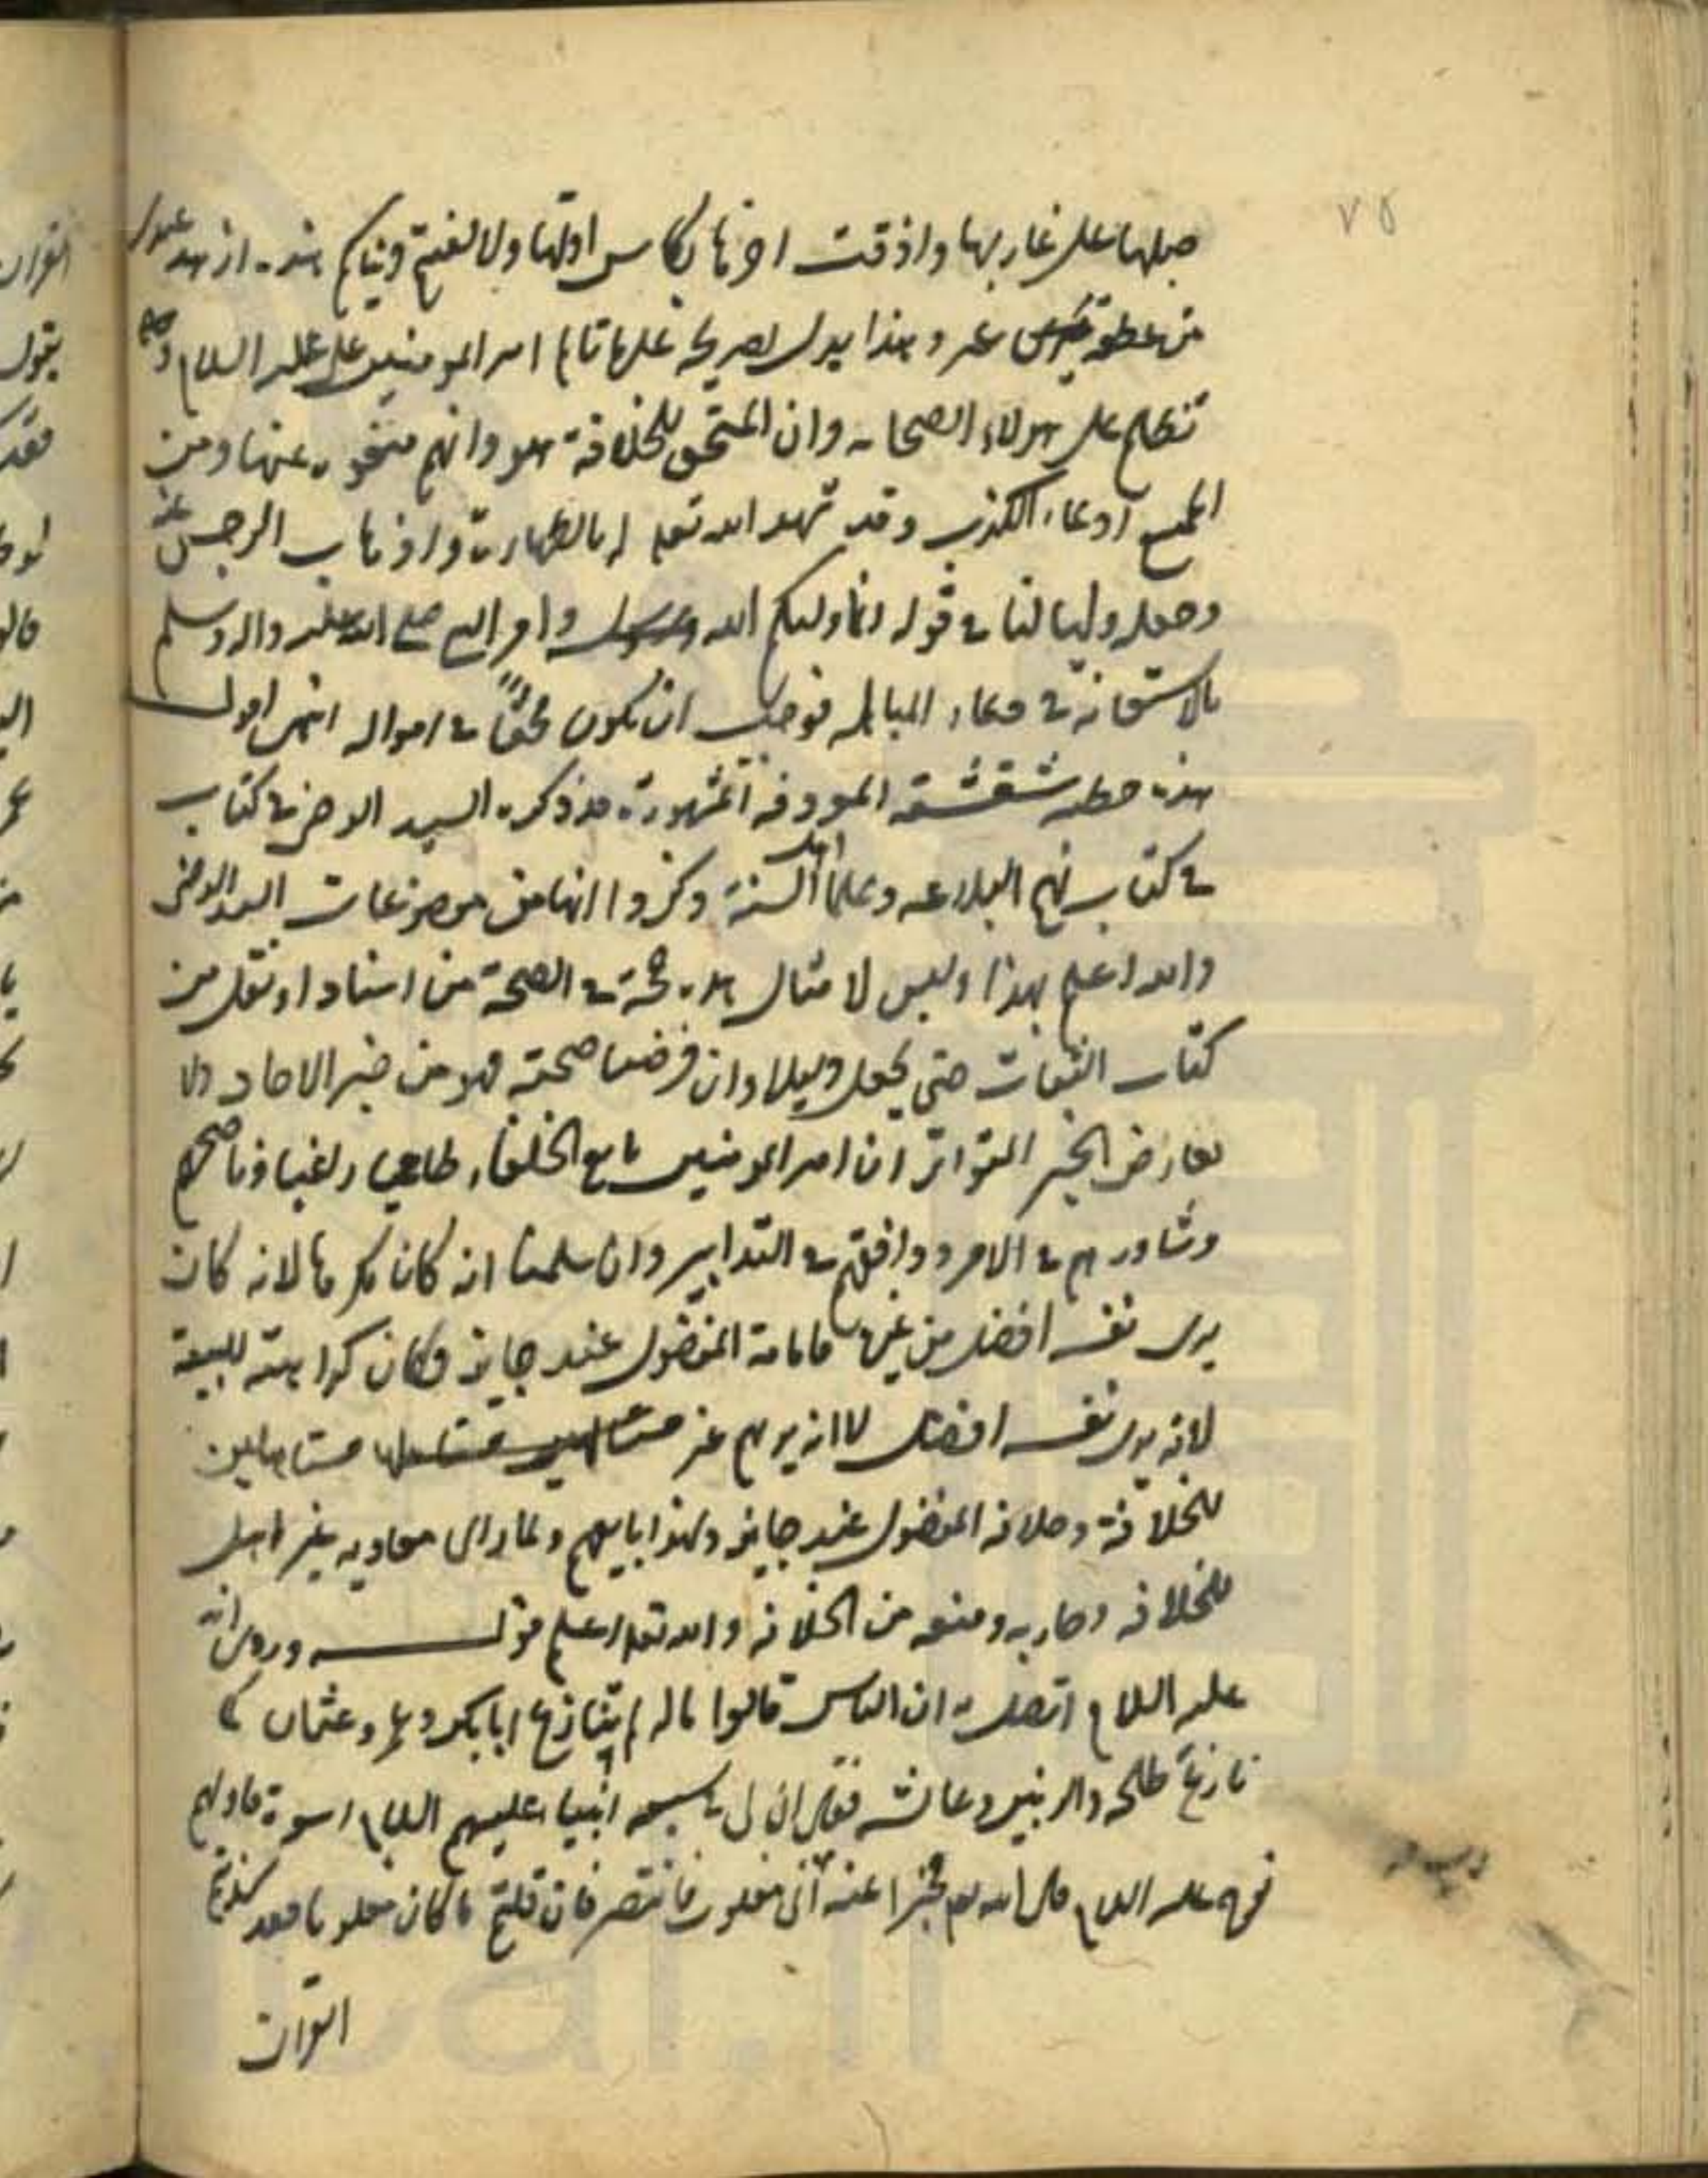 ٧٥
حبلها على غاربها واذقت اخرها بكاس اولها ولالفيتم دنياكم هذه ازهد عندى
من عطفة عنز وهذا يدل بصريحه على تالم امير المؤمنين على عليه السلام و
تظلم على هولاء الصحابه وان المستحق للخلافة هو وانهم منعوه عنها ومن
الممتنع ادعاء الكذب وقد شهد الله تعلى له بالطهارة واذهاب الرجس عنه
وجعله وليا لنا فى قوله انما وليكم الله ورسوله وامر النبى صلى الله عليه واله وسلم
بالاستعانة فى دعاء المباهله فوجب ان يكون محقا فى امواله انتهى اقول
هذه خطبه شقشقه المعروفه المشهورة قد ذكره السيد الرضى فى كتاب
فى كتاب نهج البلاغه وعلماء اهل السنة ذكروا انها من موضوعات السيد الرضى
والله اعلم بهذا وليس لامثال هذه حجة فى الصحة من اسناد او نقل من
كتاب الثقات حتى يجعل دليلا وان فرضنا صحته فهو من خبر الاحاد ولا
يعارض الخبر المتواتر ان امير المومنين بايع الخلفاء طايعا راغبا وناصحهم
وشاورهم فى الامر ووافقهم فى التدابير وان سلمنا انه كان مكرها لانه كان
يرى نفسه افضل من غيره فامامة المفضول عنده جايزه فكان كراهته للبيعة
لانه يرى نفسه افضل لا انه يريهم غير مستاهلين
للخلافة وخلافه المفضول عنده جايزه ولهذا بايعهم ولما راى معاويه غير اهل
للخلافه وحاربه ومنعه من الخلافه والله تعلى اعلم قوله وروى انه
عليه السلام اتصل به ان الناس قالوا ماله لم ينازع ابا بكر وعمر وعثمان كما
نازع طلحه والزبير وعائشه فقال ان لى فى سبعه انبياء عليهم السلام اسوة فاولهم
نوح عليه السلام قال الله تعلى مخبرا عنه انى مغلوب فانتصر فان قلتم ما كان مغلوبا فقد كذبتم
القران